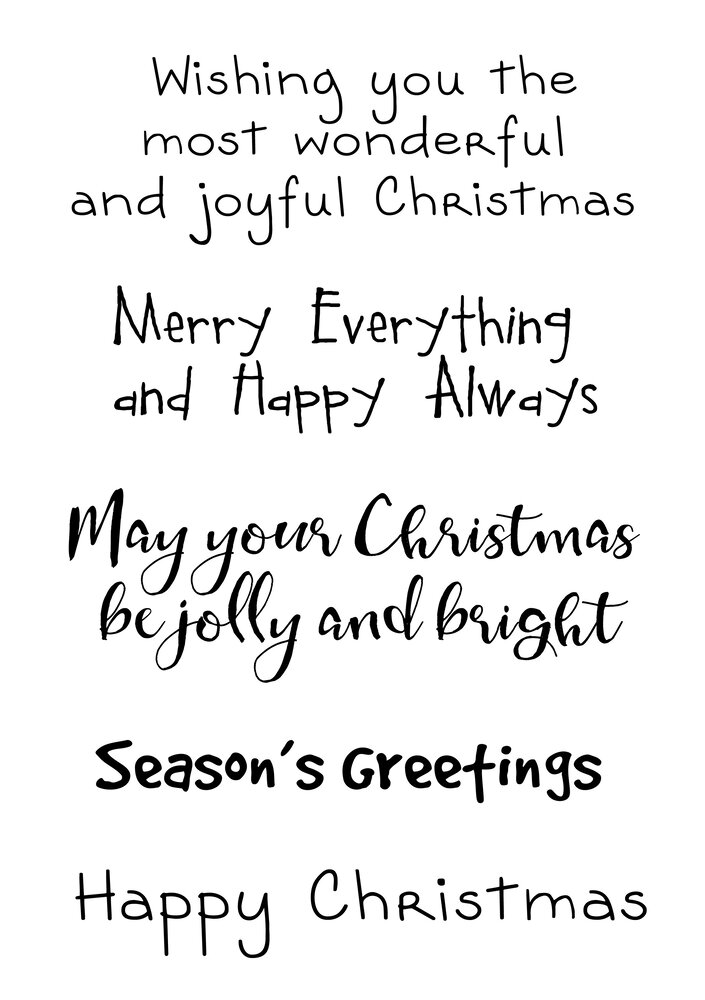 Wishing you the
most wonderful
and joyful Christmas
Merry Everything
and Happy Always
May your Christmas
be jolly and bright
Season's Greetings
Happy Christmas